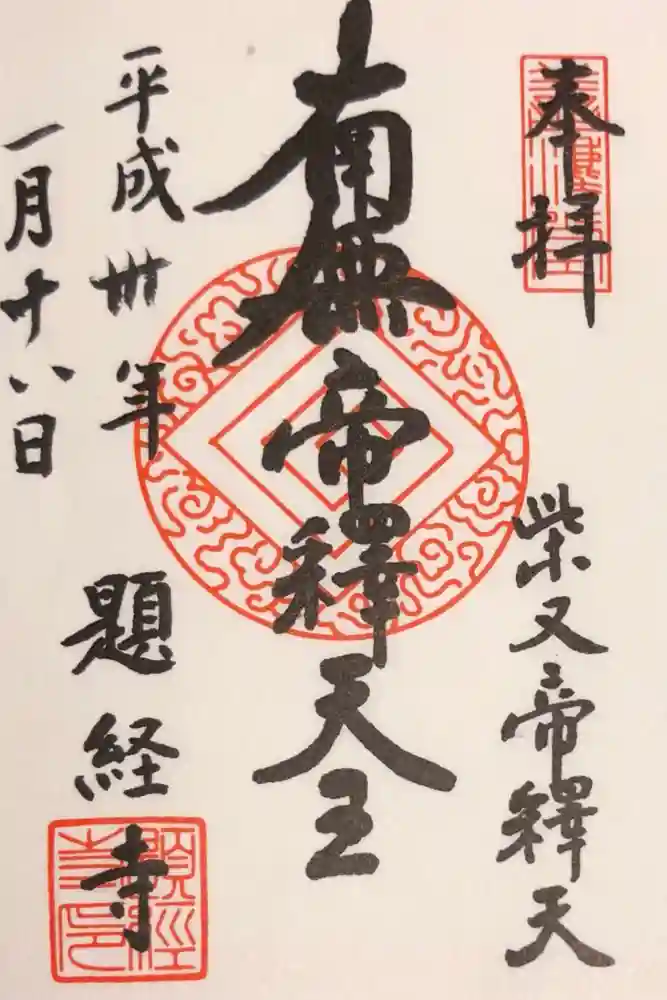 奉拝
柴又帝釋天
南無帝釋天王
平成卅年
一月十八日
題経寺